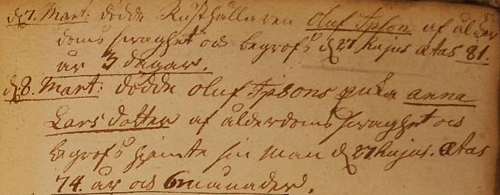 d. 7. Mart: dödde Rusthållaren Oluf Ipson af ålder
doms swaghet och begrofs d 27 hujus ætas 81.
år 3 dagar.
d. 8. Mart: dödde oluf Ipsons enka anna
Lars dotter af ålderdoms swaghet och
begrofs jemte sin man d 27 hujus. ætas
74. år och 6 månader.